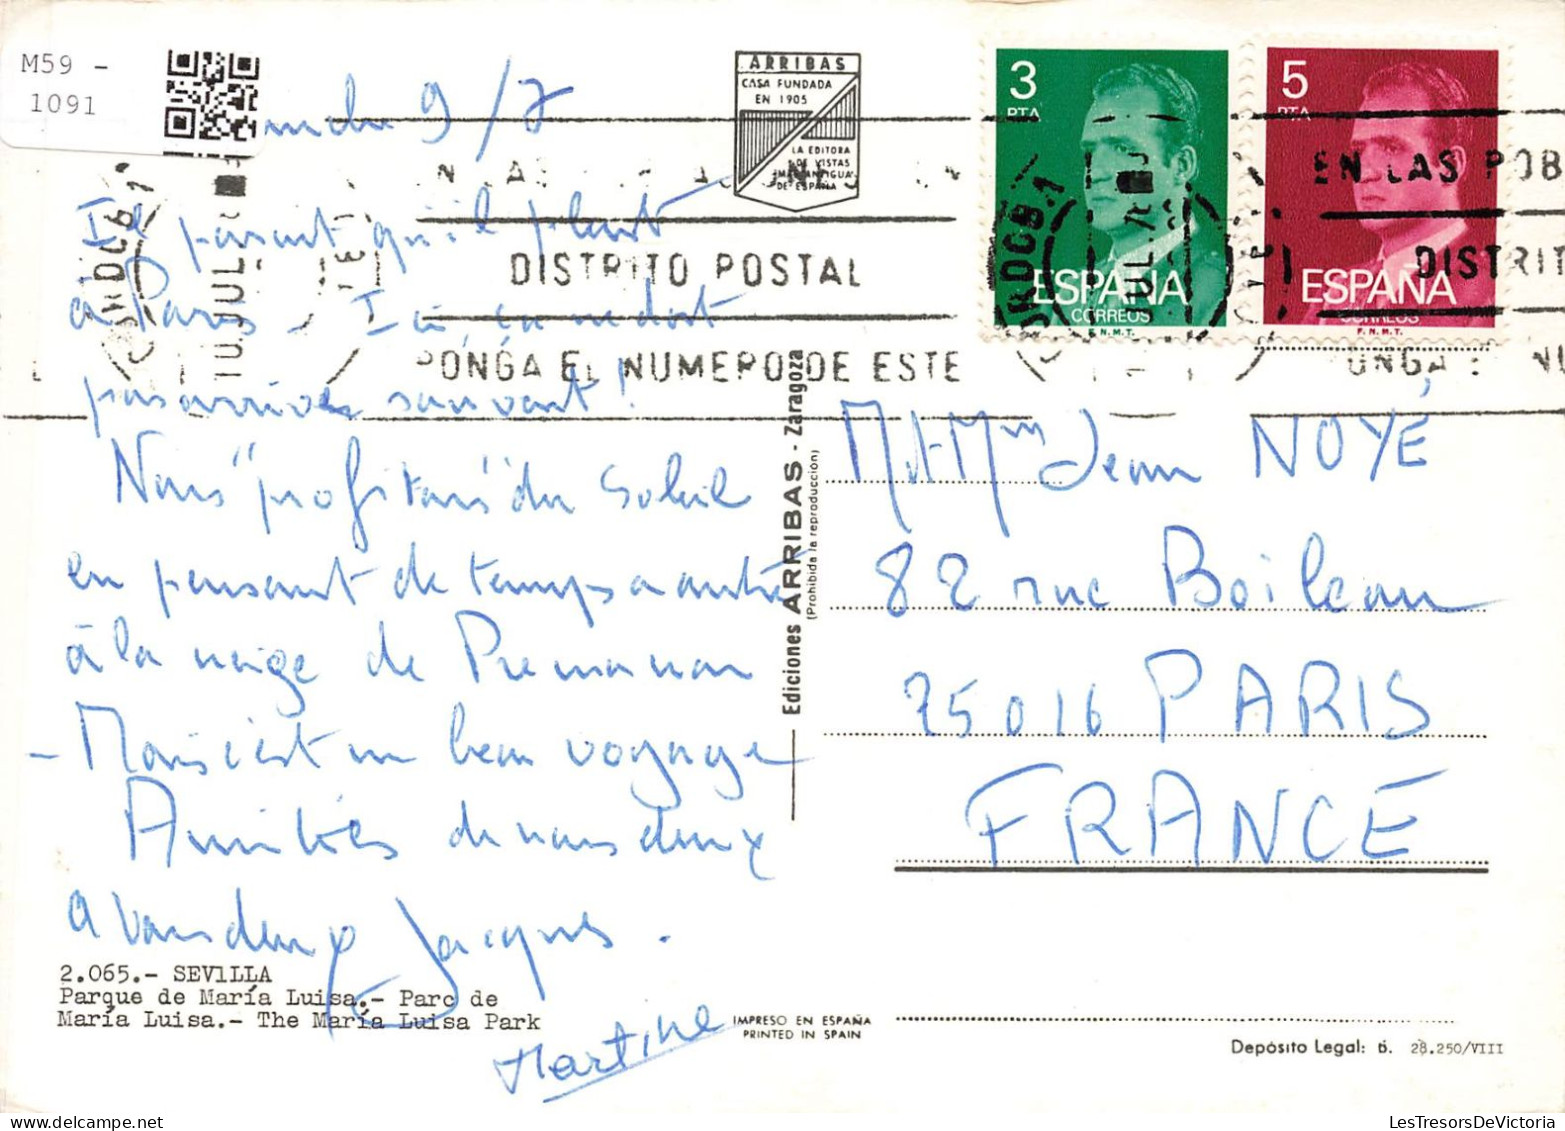 M59 -
1091
9/7
Il parait qu'il pleut
à Paris - Ici, ça ne doit
pas arriver souvent !
Nous "profitons" du soleil
en pensant de temps à autre
à la neige de Prémanon
- Mais c'est un beau voyage
Amitiés de nous deux
à vous deux Jacques .
Martine
2.065.- SEVILLA
Parque de María Luisa.- Parc de
María Luisa.- The María Luisa Park
ARRIBAS
CASA FUNDADA
EN 1905
LA EDITORA
DE VISTAS
MAS ANTIGUA
DE ESPAÑA
DISTRITO POSTAL
PONGA EL NUMERO DE ESTE
Ediciones ARRIBAS - Zaragoza
(Prohibida la reproducción)
IMPRESO EN ESPAÑA
PRINTED IN SPAIN
3
PTA
ESPAÑA
CORREOS
F.N.M.T.
5
PTA
ESPAÑA
CORREOS
F.N.M.T.
EN LAS POB
DISTRIT
PONGA E NU
CORDOBA 1
JUL
Jean NOYÉ
82 rue Boileau
75016 PARIS
FRANCE
Depósito Legal: B. 28.250/VIII
LesTresorsDeVictoria.com